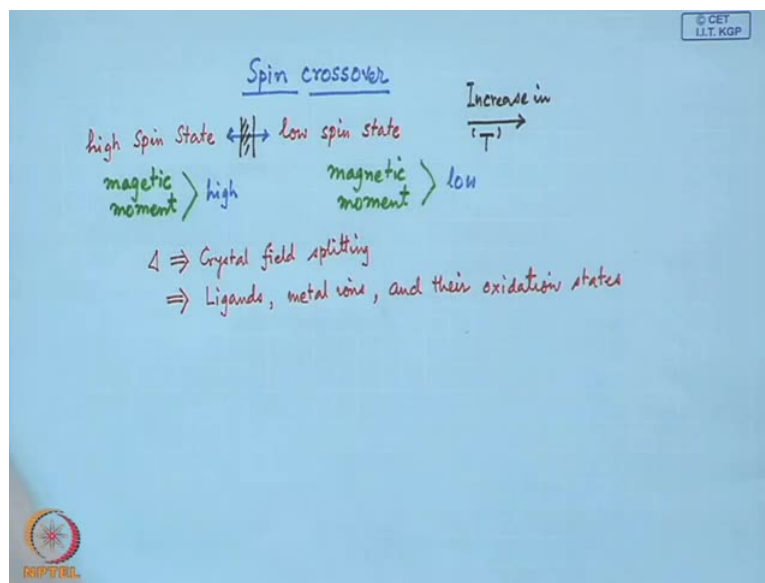 © CET
I.I.T. KGP
Spin crossover
Increase in
(T)
high spin state low spin state
magetic
moment > high
magnetic
moment > low
Δ ⇒ Crystal field splitting
⇒ Ligands, metal ions, and their oxidation states
NPTEL